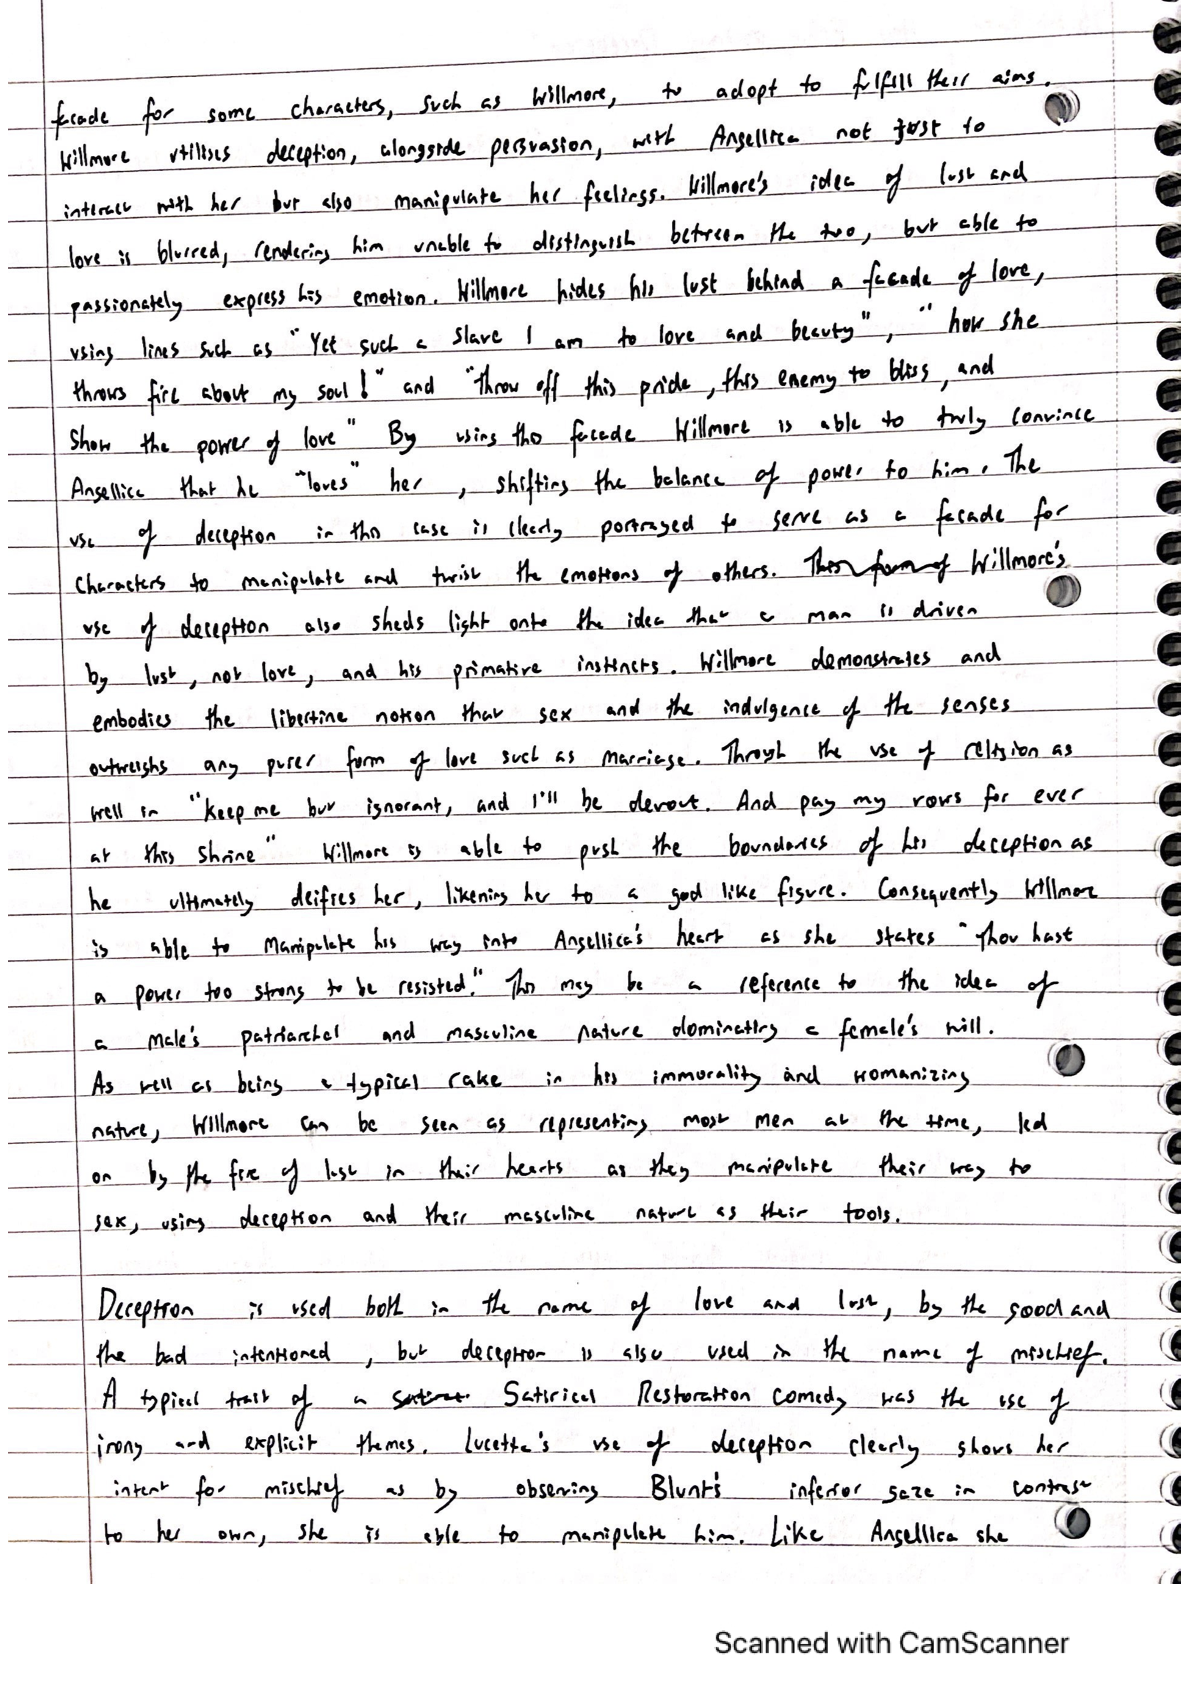 facade for some characters, such as Willmore, to adopt to fulfill their aims.
Willmore utilises deception, alongside persuasion, with Angellica not just to
interact with her but also manipulate her feelings. Willmore's idea of lust and
love is blurred, rendering him unable to distinguish between the two, but able to
passionately express his emotion. Willmore hides his lust behind a facade of love,
using lines such as "Yet such a slave I am to love and beauty", "how she
throws fire about my soul!" and "Throw off this pride, this enemy to bliss, and
Show the power of love" By using this facade Willmore is able to truly convince
Angellica that he "loves" her, shifting the balance of power to him. The
use of deception in this case is clearly portrayed to serve as a facade for
characters to manipulate and twist the emotions of others. This form of Willmore's
use of deception also sheds light onto the idea that a man is driven
by lust, not love, and his primative instincts. Willmore demonstrates and
embodies the libertine notion that sex and the indulgence of the senses
outweighs any purer form of love such as marriage. Throught the use of religion as
well in "Keep me but ignorant, and I'll be devout. And pay my vows for ever
at this shrine" Willmore is able to push the boundaries of his deception as
he ultimately deifies her, likening her to a god like figure. Consequently Willmore
is able to manipulate his way into Angellica's heart as she states "Thou hast
a power too strong to be resisted." This may be a reference to the idea of
a male's patriarchal and masculine nature dominating a female's will.
As well as being a typical rake in his immorality and womanizing
nature, Willmore can be seen as representing most men at the time, led
on by the fire of lust in their hearts as they manipulate their way to
sex, using deception and their masculine nature as their tools.
Deception is used both in the name of love and lust, by the good and
the bad intentioned, but deception is also used in the name of mischief.
A typical trait of a Satirical Restoration comedy was the use of
irony and explicit themes. Lucetta's use of deception clearly shows her
intent for mischief as by observing Blunt's inferior gaze in contrast
to her own, she is able to manipulate him. Like Angellica she
Scanned with CamScanner